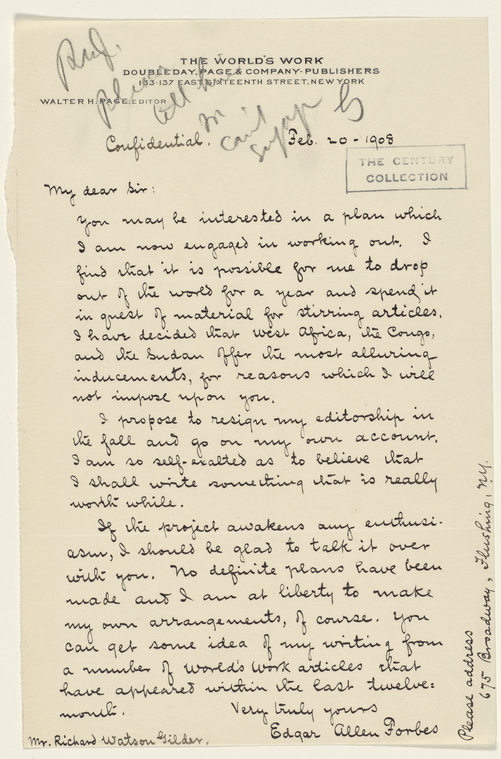 THE WORLD'S WORK
DOUBLEDAY, PAGE & COMPANY·PUBLISHERS
133·137 EAST SIXTEENTH STREET, NEW YORK
WALTER H. PAGE, EDITOR
Confidential.
Feb. 20 - 1908
THE CENTURY
COLLECTION
My dear Sir:
You may be interested in a plan which
I am now engaged in working out. I
find that it is possible for me to drop
out of the world for a year and spend it
in quest of material for stirring articles.
I have decided that West Africa, the Congo,
and the Sudan offer the most alluring
inducements, for reasons which I will
not impose upon you.
I propose to resign my editorship in
the fall and go on my own account.
I am so self-exalted as to believe that
I shall write something that is really
worth while.
If the project awakens any enthusi-
asm, I should be glad to talk it over
with you. No definite plans have been
made and I am at liberty to make
my own arrangements, of course. You
can get some idea of my writing from
a number of World's Work articles that
have appeared within the last twelve-
month.
Very truly yours
Edgar Allen Forbes
Mr. Richard Watson Gilder.
Please address
675 Broadway, Flushing, N.Y.